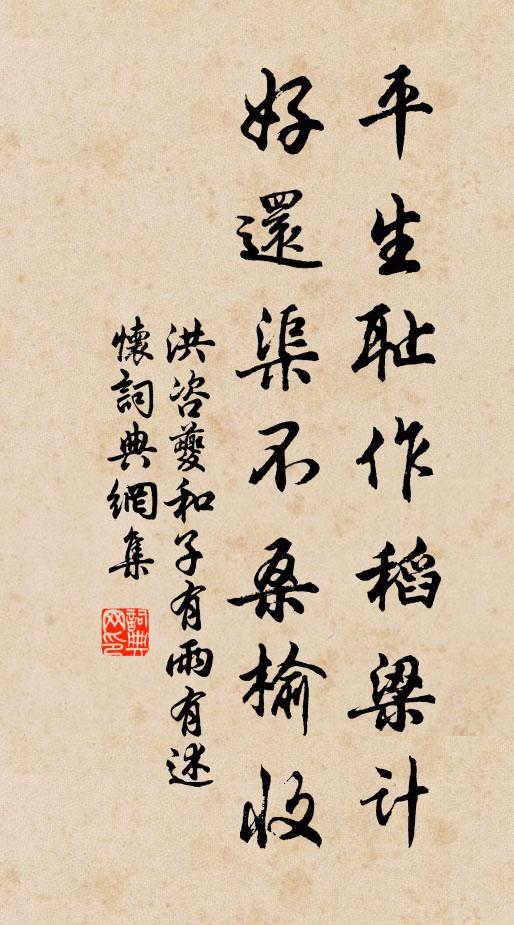 平生耻作稻粱计
好還渠不桑榆收
洪咨夔和子有雨有述
懷詞典網集
詞典
网印